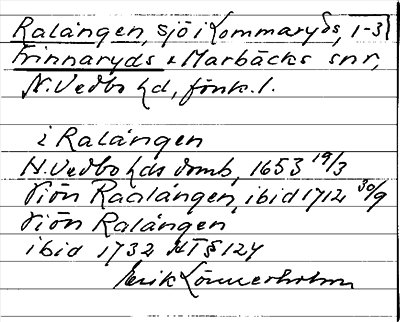 Ralången, sjö i Kommaryds, 1-3
Frinnaryds & Marbäcks snr,
N. Vedbo hd, Jönk. l.
i Ralången
N. Vedbo hds domb, 1653 19/3
Siön Raalången, ibid 1712 30/9
Siön Ralången
ibid 1732 HT § 124
Erik Lönnerholm